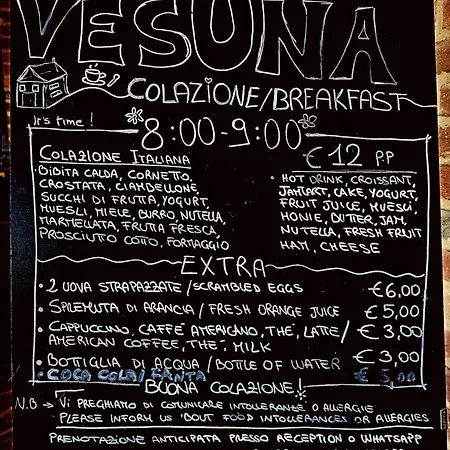 VESUNA
COLAZIONE/BREAKFAST
It's time!
8:00-9:00
COLAZIONE ITALIANA
€ 12 PP
• BIBITA CALDA, CORNETTO,
CROSTATA, CIAMBELLONE,
SUCCHI DI FRUTTA, YOGURT,
MUESLI, MIELE, BURRO, NUTELLA,
MARMELLATA, FRUTTA FRESCA,
PROSCIUTTO COTTO, FORMAGGIO
• HOT DRINK, CROISSANT,
CAKE, YOGURT,
FRUIT JUICE, MUESLI,
HONIE, BUTTER, JAM,
NUTELLA, FRESH FRUIT
HAM, CHEESE
EXTRA
• 2 UOVA STRAPAZZATE/SCRAMBLED EGGS €6,00
• SPREMUTA DI ARANCIA/FRESH ORANGE JUICE €5,00
• CAPPUCCINO, CAFFÈ AMERICANO, THÈ, LATTE/ €3,00
AMERICAN COFFEE, THE', MILK
• BOTTIGLIA DI ACQUA/BOTTLE OF WATER €3,00
• COCA COLA/FANTA € 5,00
BUONA COLAZIONE!
N.B → VI PREGHIAMO DI COMUNICARE INTOLLERANZE O ALLERGIE
PLEASE INFORM US 'BOUT FOOD INTOLLERANCES OR ALLERGIES
PRENOTAZIONE ANTICIPATA PRESSO RECEPTION O WHATSAPP